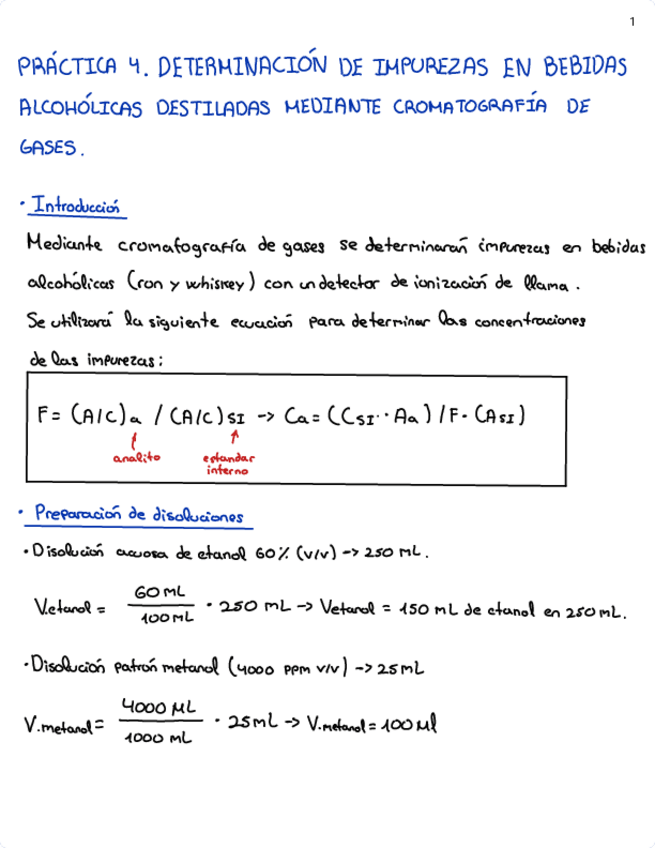 1
PRÁCTICA 4. DETERMINACIÓN DE IMPUREZAS EN BEBIDAS
ALCOHÓLICAS DESTILADAS MEDIANTE CROMATOGRAFÍA DE
GASES.
· Introducción
Mediante cromatografía de gases se determinarán impurezas en bebidas
alcohólicas (ron y whiskey) con un detector de ionización de llama.
Se utilizará la siguiente ecuación para determinar las concentraciones
de las impurezas:
F = (A/C)a / (A/C)SI -> Ca = ((CSI · Aa) / F · (ASI)
analito estandar
interno
· Preparación de disoluciones
· Disolución acuosa de etanol 60% (v/v) -> 250 mL.
V.etanol = 60 mL / 100 mL · 250 mL -> Vetanol = 150 mL de etanol en 250 mL.
· Disolución patrón metanol (4000 ppm v/v) -> 25 mL
V.metanol = 4000 µL / 1000 mL · 25 mL -> V.metanol = 100 µl